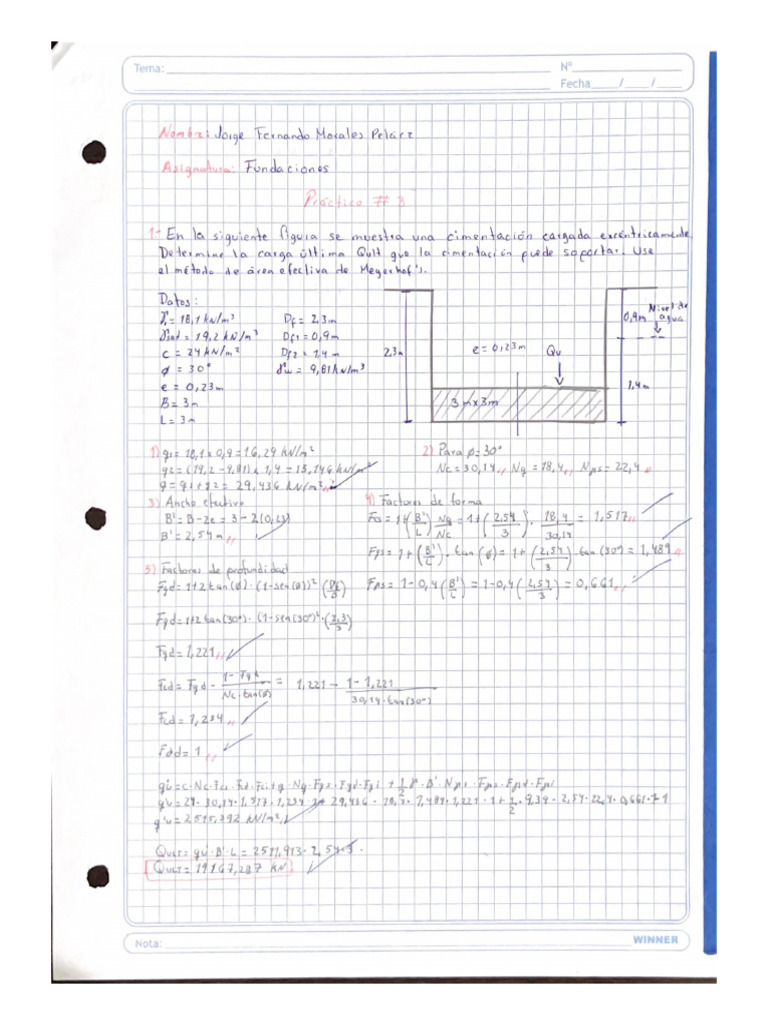 Tema:
Nº
Fecha / /
Nombre: Jorge Fernando Morales Peláez
Asignatura: Fundaciones
Práctico # 3
1.- En la siguiente figura se muestra una cimentación cargada excéntricamente
Determine la carga última Qult que la cimentación puede soportar. Use
el método de área efectiva de Meyerhof').
Datos:
γ = 18,1 kN/m³ Df = 2,3m
γsad = 19,2 kN/m³ Df1 = 0,9m
c = 24 kN/m² Df2 = 1,4m
ø = 30° γw = 9,81 kN/m³
e = 0,23m
B = 3m
L = 3m
2,3m
e = 0,23m
Qu
3m x 3m
0,9m
Nivel de
agua
1,4m
1) q1 = 18,1 x 0,9 = 16,29 kN/m²
q2 = (19,2 - 9,81) x 1,4 = 13,146 kN/m²
q = q1 + q2 = 29,436 kN/m²
2) Para ø = 30°
Nc = 30,14 Nq = 18,4 Nγs = 22,4
3) Ancho efectivo
B' = B - 2e = 3 - 2(0,23)
B' = 2,54 m
4) Factores de forma
Fcs = 1 + (B'/L) Nq/Nc = 1 + (2,54/3) · 18,4/30,14 = 1,517
Fqs = 1 + (B'/L) · tan(ø) = 1 + (2,54/3) · tan(30°) = 1,489
Fγs = 1 - 0,4 (B'/L) = 1 - 0,4 (2,54/3) = 0,661
5) Factores de profundidad
Fqd = 1 + 2 tan(ø) · (1 - sen(ø))² (Df/B)
Fqd = 1 + 2 tan(30°) · (1 - sen(30°))² · (2,3/3)
Fqd = 1,221
Fcd = Fqd - (1 - Fqd)/(Nc · tan(ø)) = 1,221 - (1 - 1,221)/(30,14 · tan(30°))
Fcd = 1,234
Fγd = 1
q'u = c · Nc · Fcs · Fcd · Fci + q · Nq · Fqs · Fqd · Fqi + 1/2 γ · B' · Nγs · Fγs · Fγd · Fγi
q'u = 24 · 30,14 · 1,517 · 1,234 · 1 + 29,436 · 18,4 · 1,489 · 1,221 · 1 + 1/2 · 9,39 · 2,54 · 22,4 · 0,661 · 1 · 1
q'u = 2515,392 kN/m²
Qult = qu' · B' · L = 2511,913 · 2,54 · 3
Qult = 19167,287 kN
Nota:
WINNER